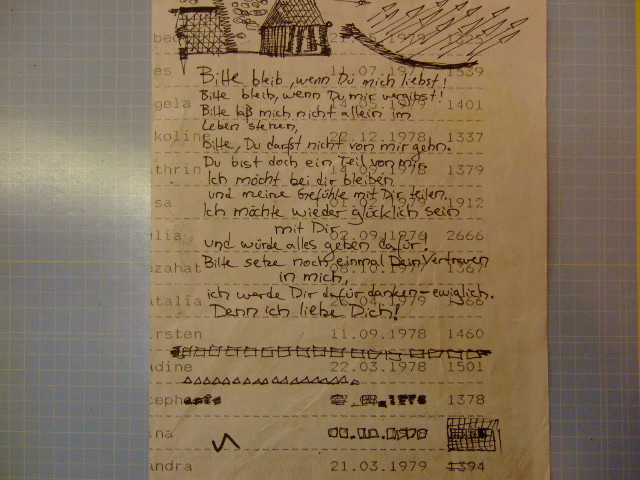 1325
Bitte bleib, wenn Du mich liebst!
es 11.07.1979 1539
Bitte bleib, wenn Du mir vergibst!
gela 1401
Bitte laß mich nicht allein im
Leben stehen,
koline 22.12.1978 1337
Bitte, Du darfst nicht von mir gehn.
thrin 1379
Du bist doch ein Teil von mir.
Ich möcht bei dir bleiben
sa 1912
und meine Gefühle mit Dir teilen.
Ich möchte wieder glücklich sein
mit Dir
lia 02.09.1976 2666
und würde alles geben dafür.
Bitte setze noch einmal Dein Vertrauen
zahat 1367
in mich,
ich werde Dir dafür danken - ewiglich.
atalia
Denn ich liebe Dich!
rsten 11.09.1978 1460
adine 22.03.1978 1501
teph 1378
ina
andra 21.03.1979 1394